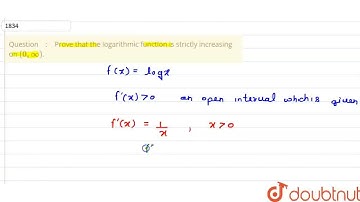 1834
Question : Prove that the logarithmic function is strictly increasing
on (0, ∞).
f(x) = logx
f'(x) > 0 an open interval which is given
f'(x) = 1/x , x > 0
doubtnut